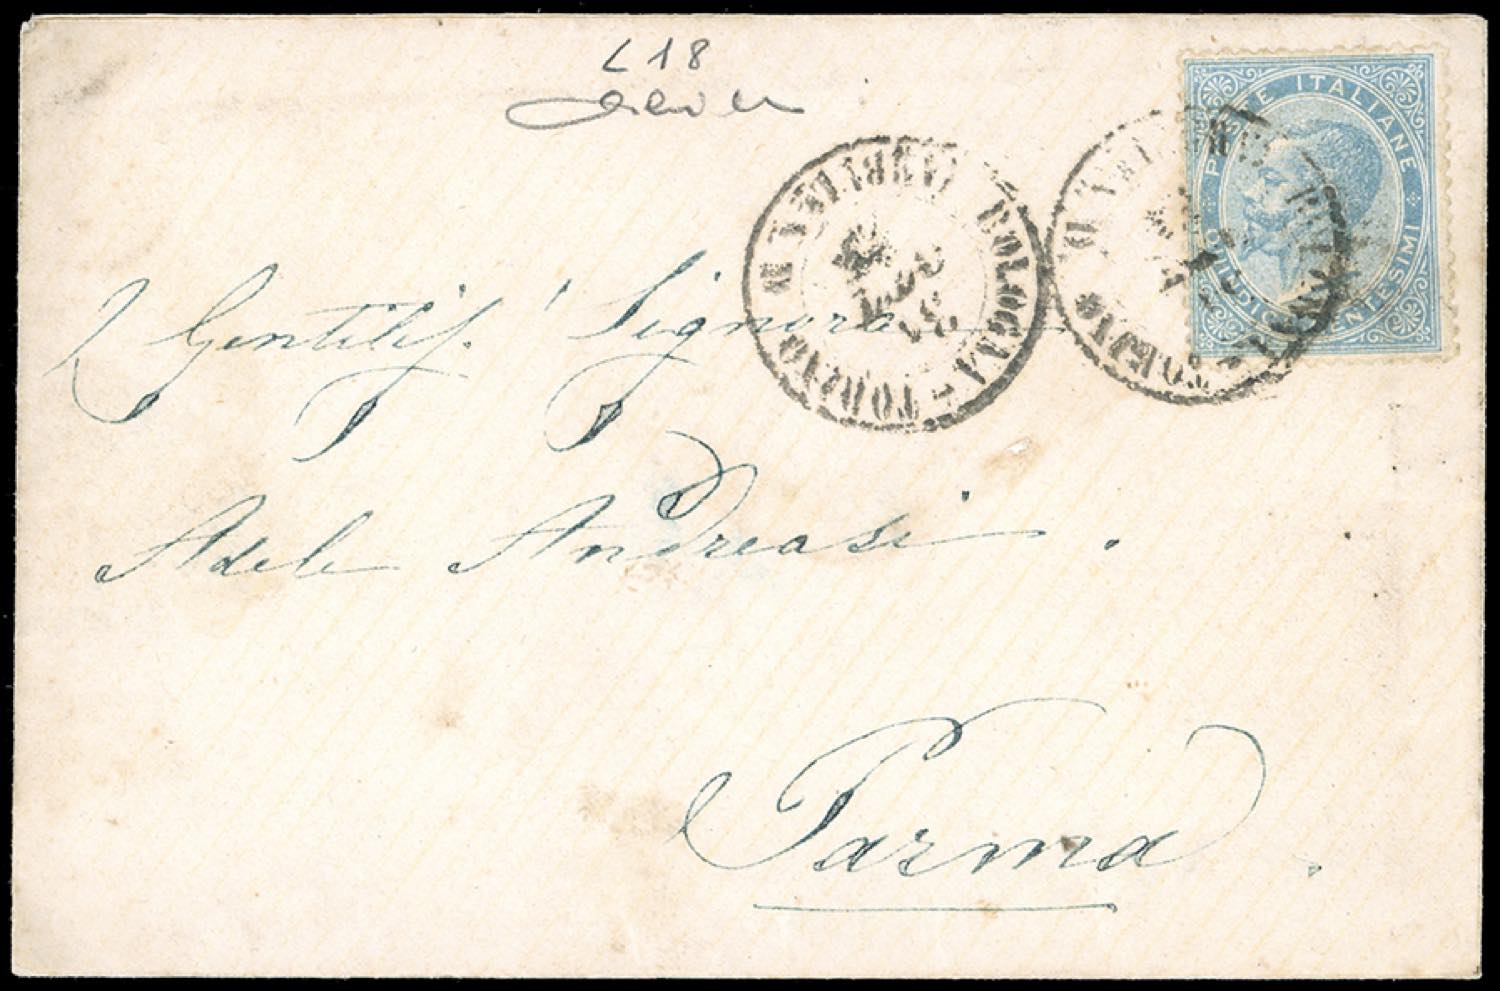 L 18
POSTE ITALIANE
QUINDICI CENTESIMI
BOLOGNA - TORINO
Gentilis. Signora
Adele Andreasi.
Parma.